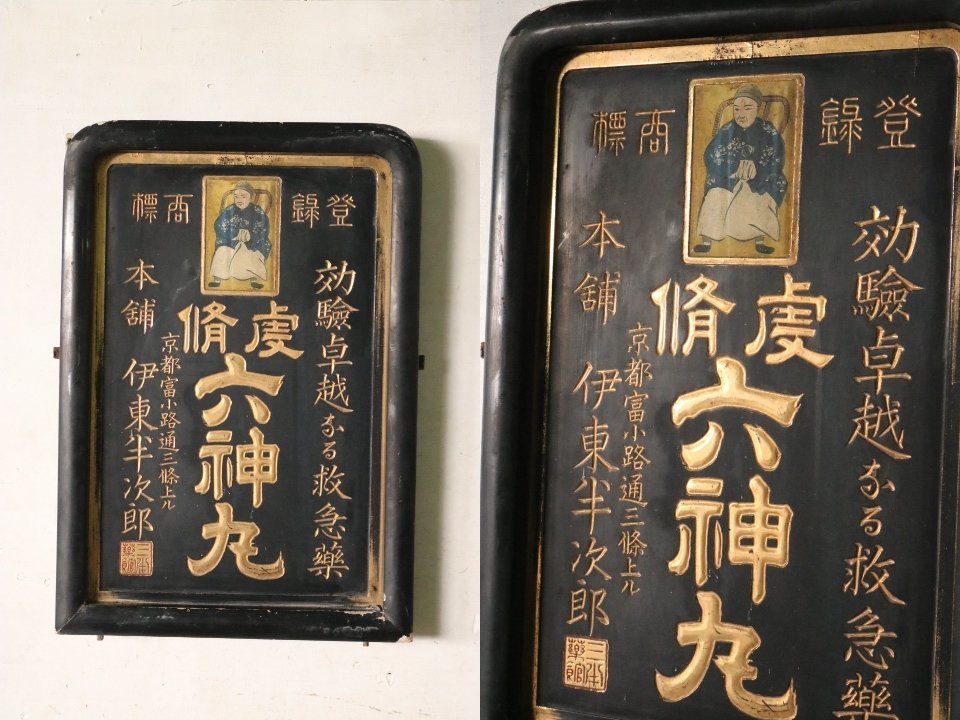 登錄商標
効驗卓越なる救急藥
虔脩
六神丸
京都富小路通三條上ル
本舖 伊東半次郎
登錄商標
効驗卓越なる救急藥
虔脩
六神丸
京都富小路通三條上ル
本舖 伊東半次郎